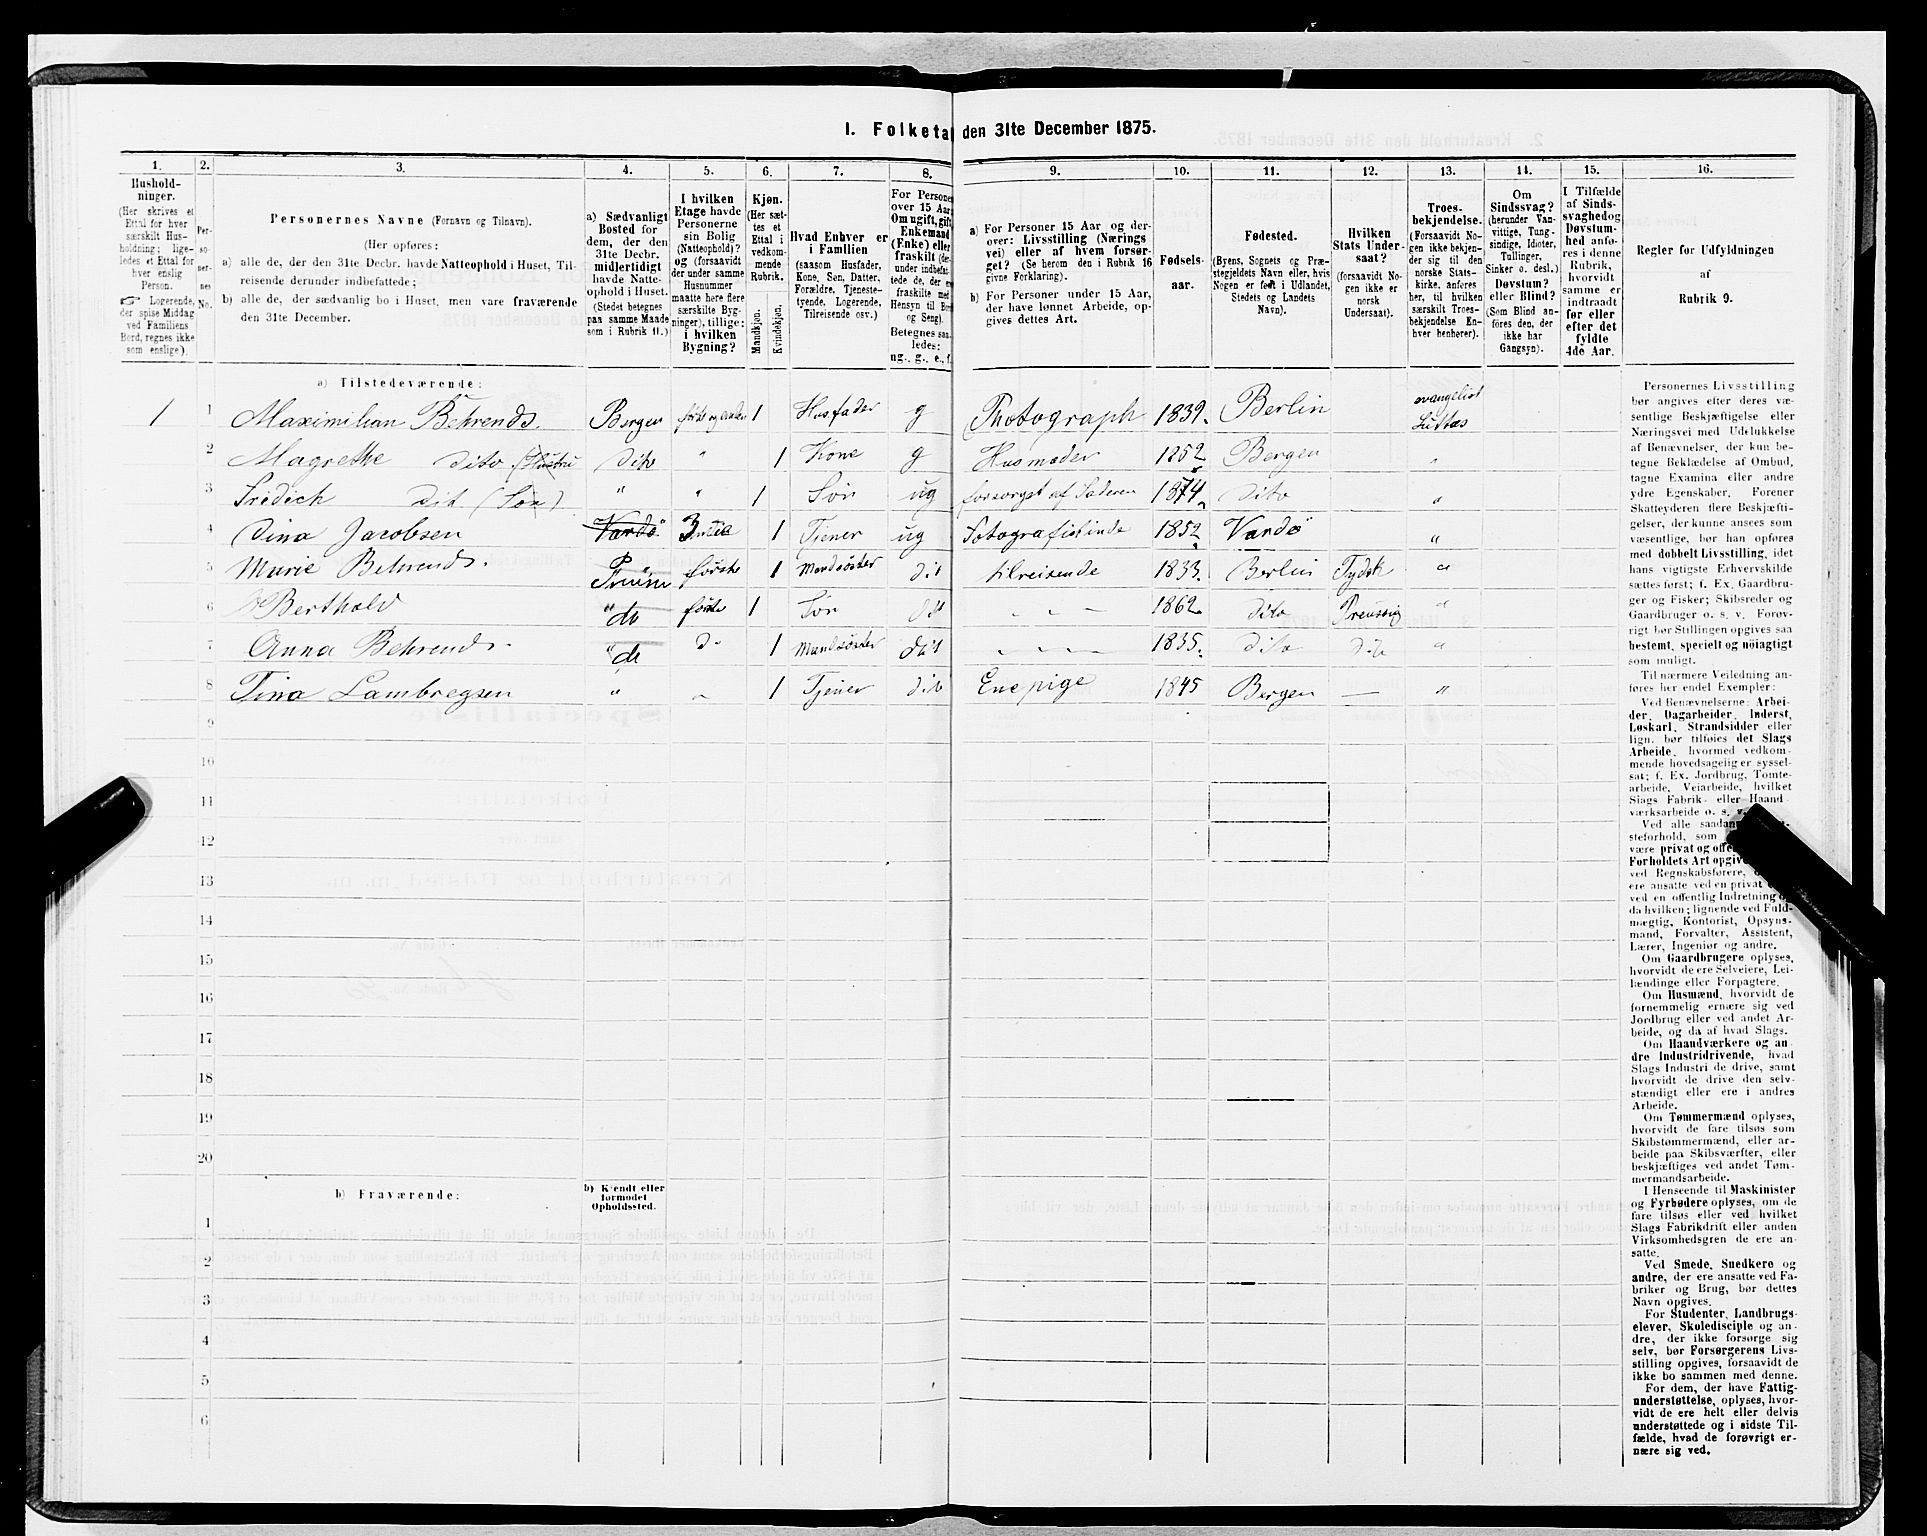 1. Folketa den 31te December 1875.
1. 2. 3. 4. 5. 6. 7. 8. 9. 10. 11. 12. 13. 14. 15. 16.
Hushold-
ninger.
(Her skrives et
Ettal for hver
særskilt Hus-
holdning; lige-
ledes et Ettal for
hver enslig
Person.
Logerende,
der spise Middag
ved Familiens
Bord, regnes ikke
som enslige).
Per-
so-
ner-
nes
No.
Personernes Navne (Fornavn og Tilnavn).
(Her opføres:
a) alle de, der den 31te Decbr. havde Natteophold i Huset, Til-
reisende derunder indbefattede;
b) alle de, der sædvanlig bo i Huset, men vare fraværende
den 31te December.
a) Sædvanligt
Bosted for
dem, der den
31te Decbr.
midlertidigt
havde Natte-
ophold i Huset.
(Stedet betegnes
paa samme Maade
som i Rubrik 11.)
I hvilken
Etage havde
Personerne
sin Bolig
(Natteophold)?
og (forsaavidt
der under samme
Husnummer
maatte høre flere
særskilte Byg-
ninger), tillige:
i hvilken
Bygning?
Kjøn.
(Her sæt-
tes et
Ettal i
vedkom-
mende
Rubrik.
Mandkjøn.
Kvindekjøn.
Hvad Enhver er
i Familien
(saasom Husfader,
Kone, Søn, Datter,
Forældre, Tjeneste-
tyende, Logerende,
Tilreisende osv.)
For Persone
over 15 Aar
Om ugift, gift
Enkemand
(Enke) eller
fraskilt (der-
under indbefat-
tede de, der er
fraskilte med
Hensyn til Bor
og Seng).
Betegnes saa-
ledes:
ug., g., e., f.
a) For Personer 15 Aar og der-
over: Livsstilling (Nærings
vei) eller af hvem forsør-
get? (Se herom den i Rubrik 16
givne Forklaring).
b) For Personer under 15 Aar,
der have lønnet Arbeide, op-
gives dettes Art.
Fødsels-
aar.
Fødested.
(Byens, Sognets og Præ-
stegjeldets Navn eller, hvis
Nogen er født i Udlandet,
Stedets og Landets
Navn).
Hvilken
Stats Under-
saat?
(forsaavidt No-
gen ikke er
norsk
Undersaat).
Troes-
bekjendelse.
(Forsaavidt No-
gen ikke bekjen-
der sig til den
norske Stats-
kirke, anføres
her, til hvilken
særskilt Troes-
bekjendelse En-
hver henhører).
Om
Sindssvag?
(herunder Van-
vittige, Tung-
sindige, Idioter,
Tullinger,
Sinker o. desl.)
Døvstum?
eller Blind?
(Som Blind an-
føres den, der
ikke har
Gangsyn).
I Tilfælde
af Sinds-
svaghed og
Døvstum-
hed anfø-
res i denne
Rubrik,
hvorvidt
samme er
indtraadt
før eller
efter det
fyldte
4de Aar.
Regler for Udfyldningen
af
Rubrik 9.
a) Tilstedeværende:
1 1 Maximilian Behrends. Bergen 1 Husfader g Photograph 1839. Berlin evangelist
2 Magrethe dito (Hustru dito " 1 Kone g Husmoder 1852 Bergen "
3 Fridrick dit (Søn) " " 1 Søn ug forsorget af Faderen 1874 dito "
4 Dina Jacobsen Vardö 1 Tjener ug Fotografistinde 1852 Vardö "
5 Marie Behrends. første 1 Mandsöster dit tilreisende 1833. Berlin Tydsk "
6 Berthold " do 1 Søn dit " 1862. dito Preussig "
7 Anna Behrends. " do d" 1 Mandsöster dit " 1835. dito dito "
8 Tina Lambregsen " " 1 Tjener dito Enepige 1845 Bergen — "
9
10
11
12
13
14
15
16
17
18
19
20
b) Fraværende:
b) Kjendt eller
formodet
Opholdssted.
1
2
3
4
5
6
Personernes Livsstilling
bør angives efter deres væ-
sentlige Beskjæftigelse eller
Næringsvei med Udelukkelse
af Benævnelser, der kun be-
tegne Beklædelse af Ombud,
tagne Examina eller andre
ydre Egenskaber. Forener
Skatteyderen flere Beskjæfti-
gelser, der kunne ansees som
væsentlige, bør han opføres
med dobbelt Livsstilling, idet
hans vigtigste Erhvervskilde
sættes først; f. Ex. Gaardbru-
ger og Fisker; Skibsreder og
Gaardbruger o. s. v. Forøv-
rigt bør Stillingen opgives saa
bestemt, specielt og nöiagtigt
som muligt.
Til nærmere Veiledning an-
føres her endel Exempler:
Ved Benævnelserne: Arbei-
der, Dagarbeider, Inderst,
Løskarl, Strandsidder eller
lign. bør tilføies det Slags
Arbeide, hvormed vedkom-
mende hovedsagelig er syssel-
sat; f. Ex. Jordbrug, Tomte-
arbeide, Veiarbeide, hvilket
Slags Fabrik- eller Haand-
værksarbeide o. s. v.
Ved alle saadan
steforhold, som
være privat og offe
Forholdets Art opgiv
ved Regnskabsførere,
ere ansatte ved en privat
ved en offentlig Indretning
da hvilken; lignende ved Fuld-
mægtig, Kontorist, Opsyns-
mand, Forvalter, Assistent,
Lærer, Ingeniør og andre.
Om Gaardbrugere oplyses,
hvorvidt de ere Selveiere, Lei-
lændinge eller Forpagtere.
Om Husmænd, hvorvidt de
fornemmelig ernære sig ved
Jordbrug eller ved andet Ar-
beide, og da af hvad Slags.
Om Haandværkere og an-
dre Industridrivende, hvad
Slags Industri de drive, samt
hvorvidt de drive den selv-
stændigt eller ere i andres
Arbeide.
Om Tømmermænd oplyses,
hvorvidt de fare tilsøs som
Skibstømmermænd, eller ar-
beide paa Skibsværfter, eller
beskjæftiges ved andet Tøm-
mermandsarbeide.
I Henseende til Maskinister
og Fyrbødere oplyses, om de
fare tilsøs eller ved hvilket
Slags Fabrikdrift eller anden
Virksomhedsgren de ere an-
satte.
Ved Smede, Snedkere og
andre, der ere ansatte ved Fa-
briker og Brug, bør dettes
Navn opgives.
For Studenter, Landbrugs-
elever, Skoledisciple og an-
dre, der ikke forsørge sig
selv, bør Forsørgerens Livs-
stilling opgives, forsaavidt de
ikke bo sammen med denne.
For dem, der have Fattig-
understøttelse, oplyses, hvor-
vidt de ere helt eller delvis
understøttede og i sidste Til-
fælde, hvad de forøvrigt er-
nære sig ved.